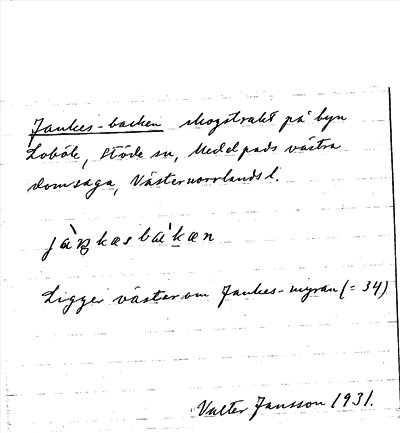 Jankes-backen skogstrakt på byn
Loböle, Stöde sn, Medelpads västra
domsaga, Västernorrlands l.
jàŋkæsbàkæn
Ligger väster om Jankes-myran (= 34)
Valter Jansson 1931.